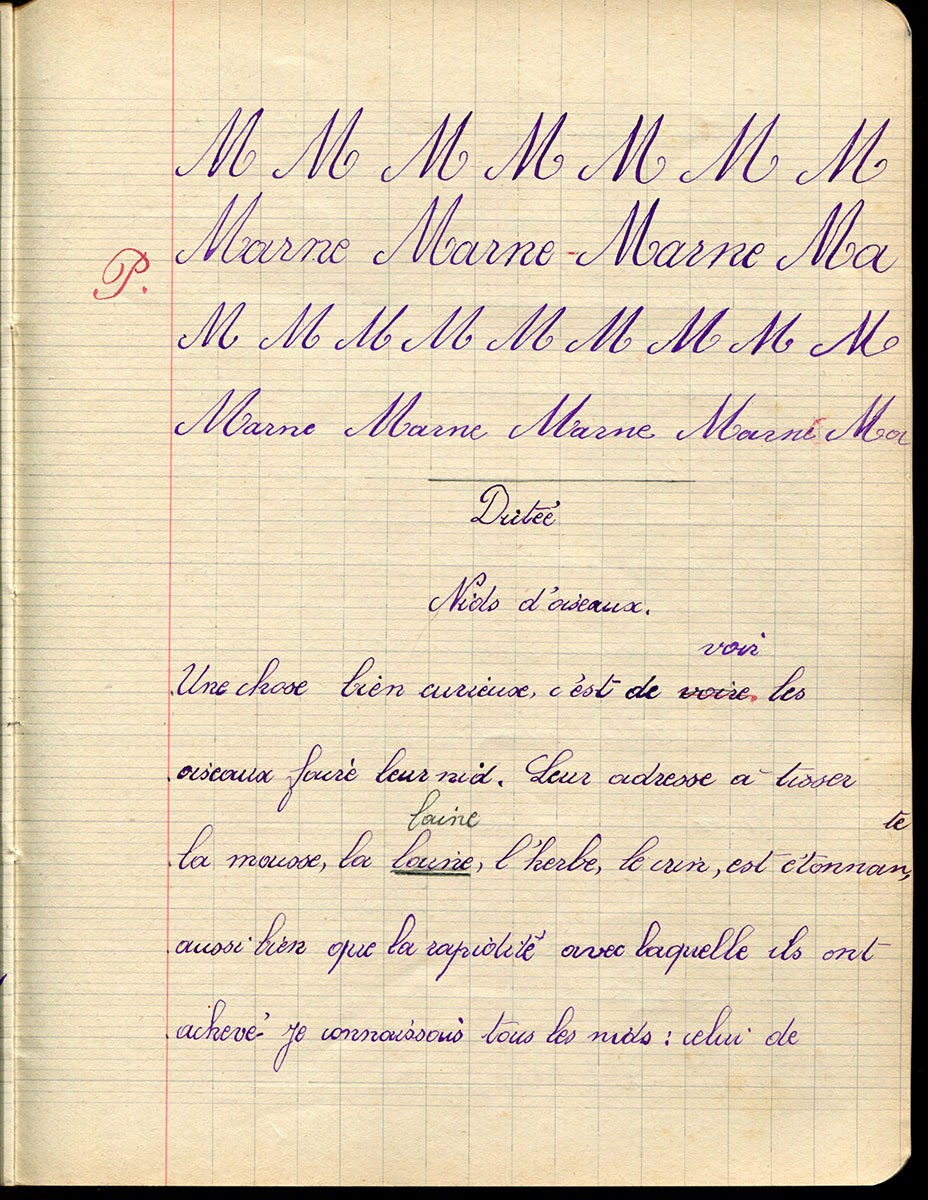 M M M M M M M
P.
Marne Marne - Marne Ma
M M M M M M M M M
Marne Marne Marne Marne Ma
Dictée
Nids d'oiseaux.
voir
Une chose bien curieuse, c'est de voire les
oiseaux faire leur nid. Leur adresse à tisser
laine
te
la mousse, la laine, l'herbe, le crin, est étonnan,
aussi bien que la rapidité avec laquelle ils ont
achevé. Je connaissais tous les nids : celui de